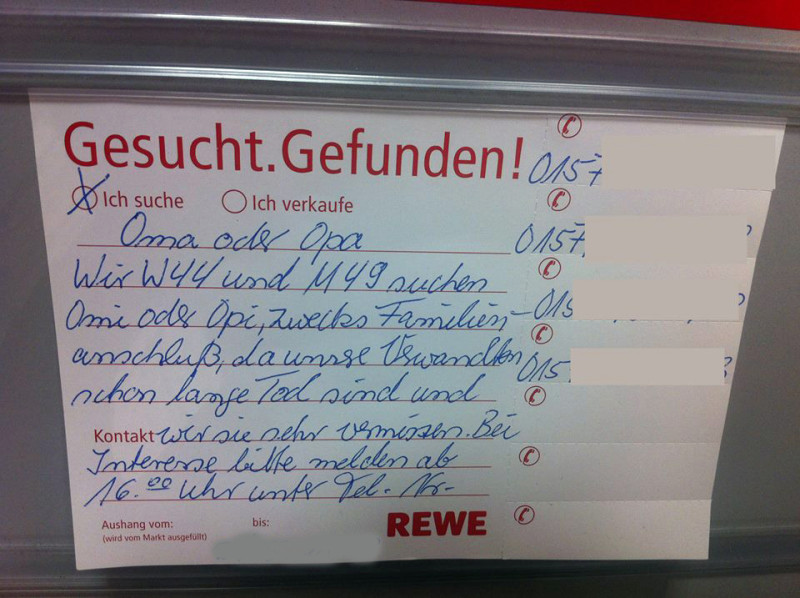 Gesucht.Gefunden!
Ich suche Ich verkaufe
Oma oder Opa
Wir W44 und M49 suchen
Omi oder Opi, zwecks Familien-
anschluß, da unsre Verwandten
schon lange Tod sind und
Kontakt wir sie sehr vermissen. Bei
Interesse bitte melden ab
16.00 Uhr unter Tel.-Nr.-
Aushang vom: bis:
(wird vom Markt ausgefüllt)
REWE
0157
0157
015
015